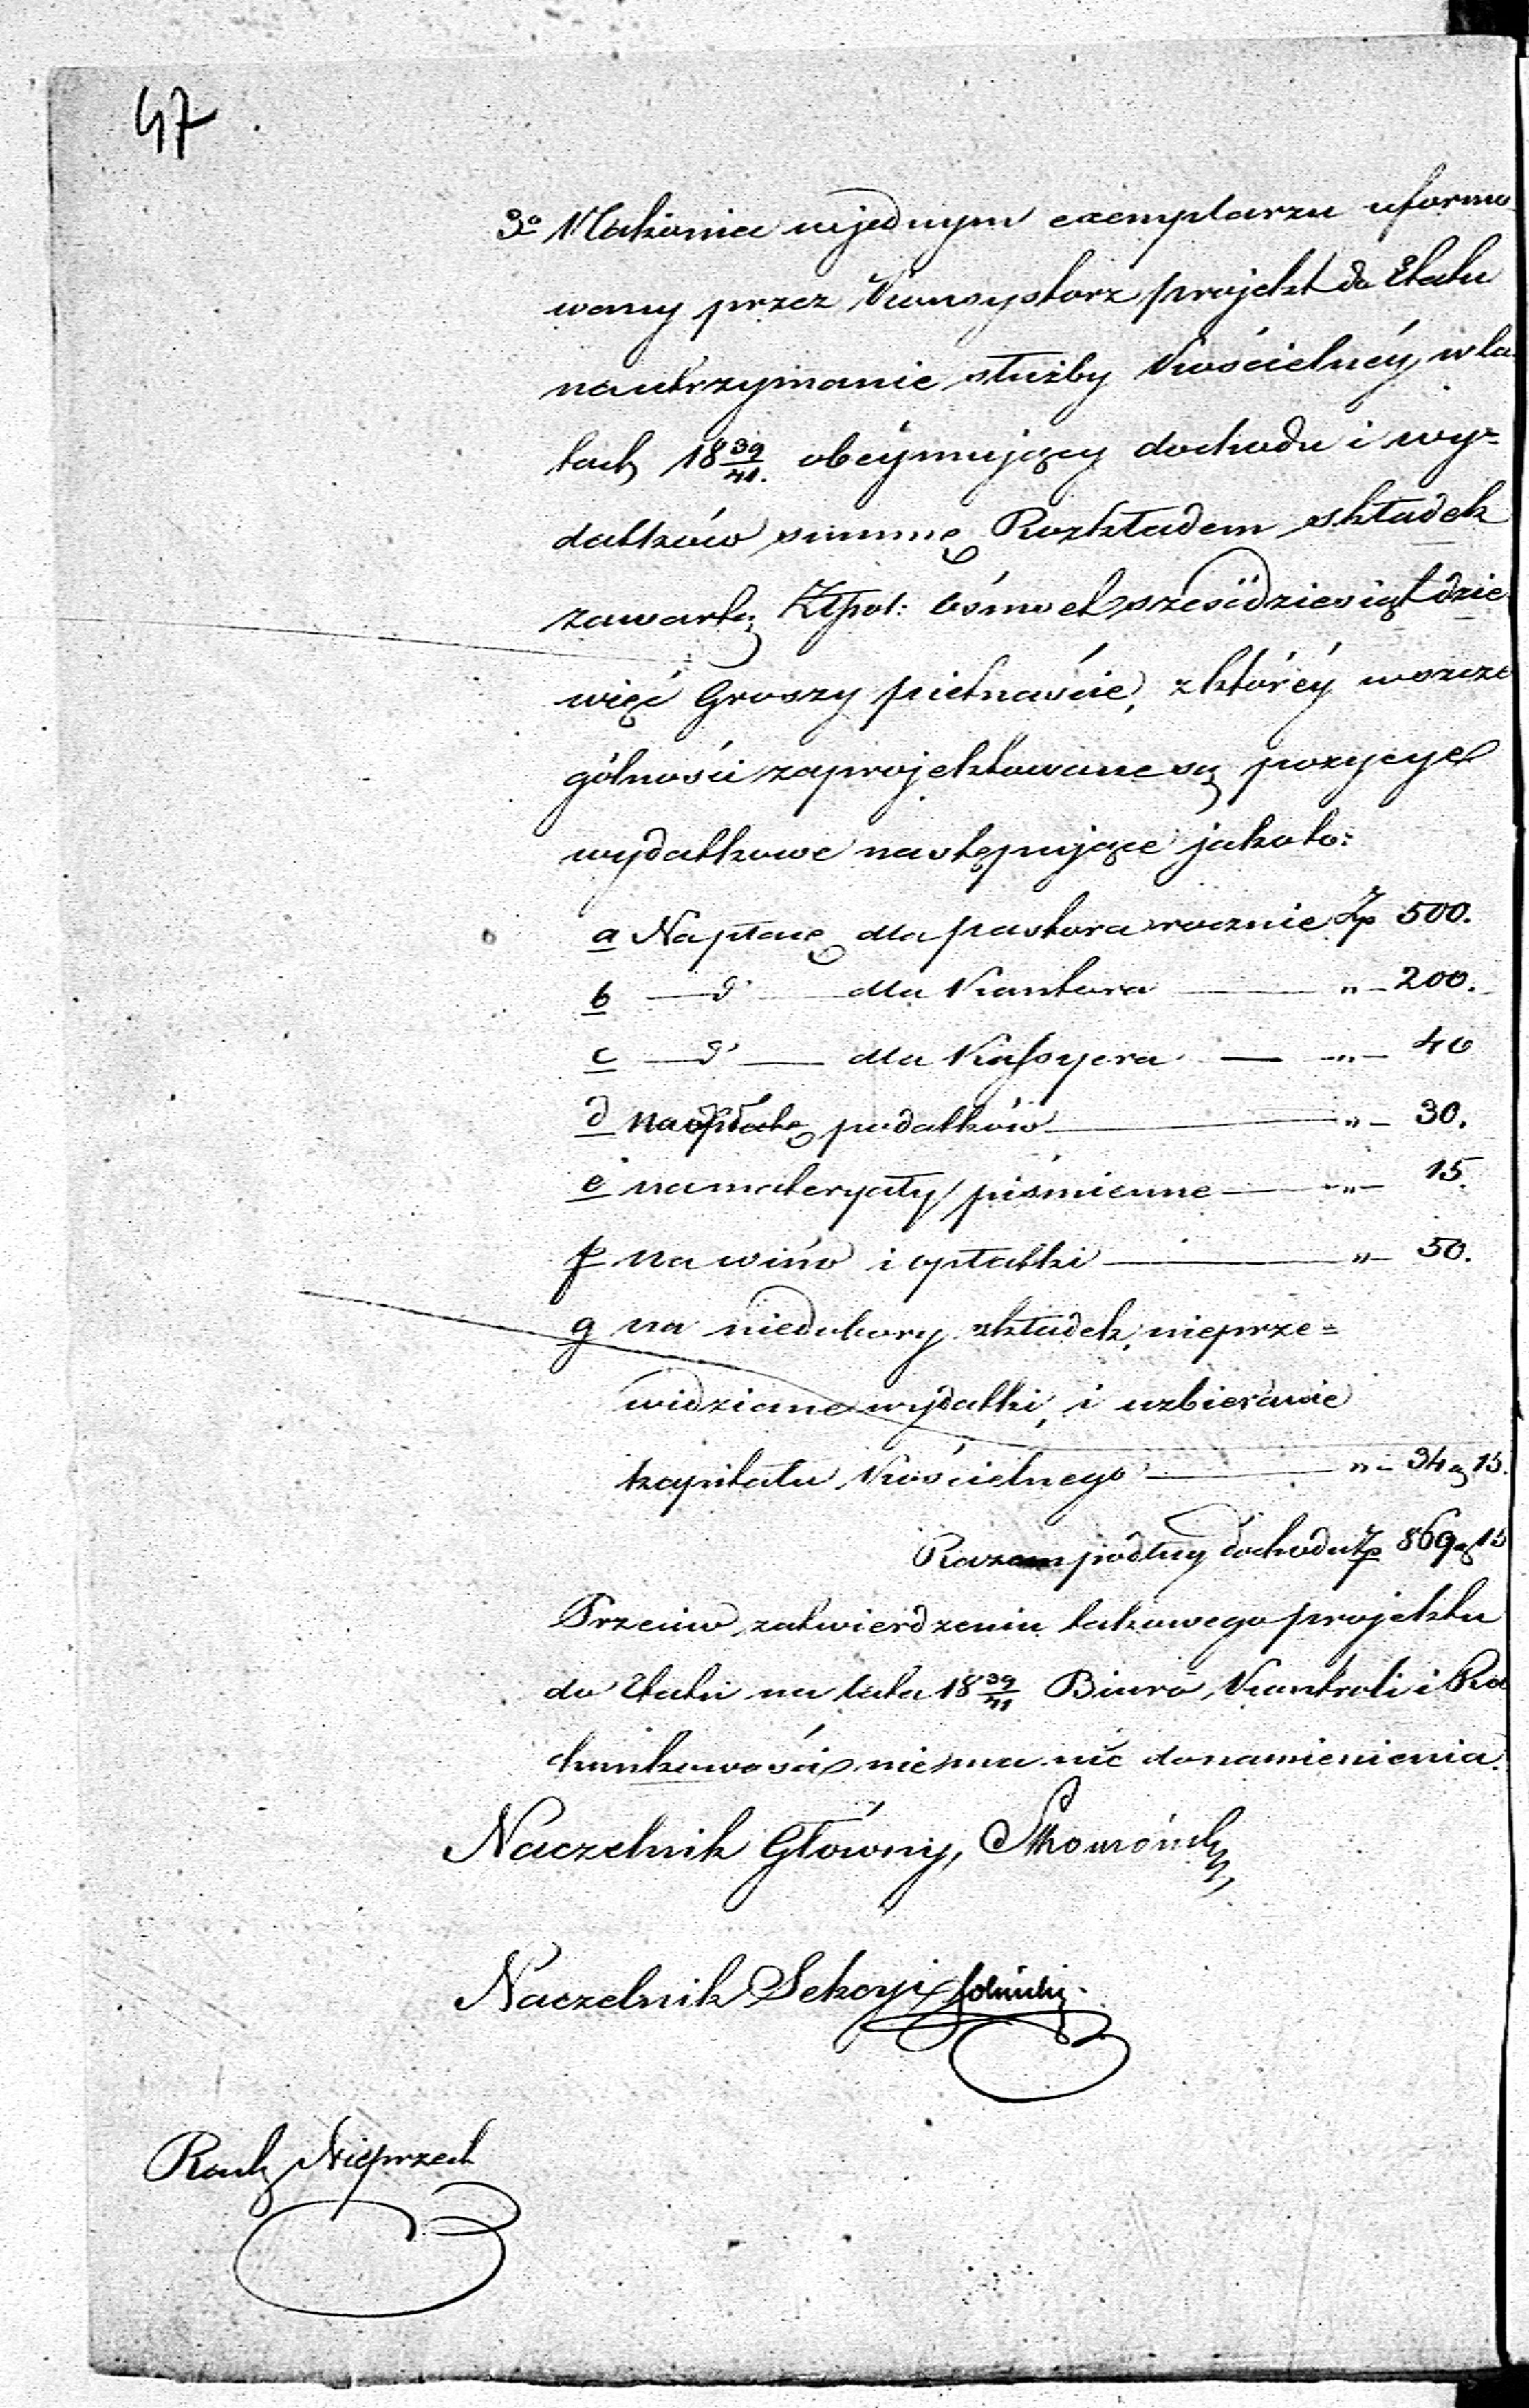 47
3o Nakoniec wjednym exemplarzu uformo
wany przez Konsystorz projekt do Etatu
na utrzymanie służby Kościelnéy, w la
tach 18 39/41. obéymujący dochodu i wy=
datków summę Rozkładem składek
zawartą Złpol: ośmset sześćdziesiąt dzie
więć Groszy pietnaście, z któréy wszcze
gólności zaprojektowane są pozycye
wydatkowe następujące jakoto:
a Na płacę dla pastora rocznie Zp 500.
b — d° — dla Kantora — " — 200.
c — d° — dla Kassyera — " — 40
d na opłatę podatków — " — 30.
e na materyały piśmienne — " — 15.
f na wino i opłatki — " — 50.
g na niedobory składek, nieprze=
widziane wydatki, i uzbieranie
kapitału Kościelnego — " — 34 g 15.
Razem podług dochodu Zp 869 g 15
Przeciw zatwierdzeniu takowego projektu
do Etatu na lata 18 39/41 Biuro Kontroli i Ra
chunkowości niema nic donamienienia.
Naczelnik Główny,
Naczelnik Sekcyi
Rach